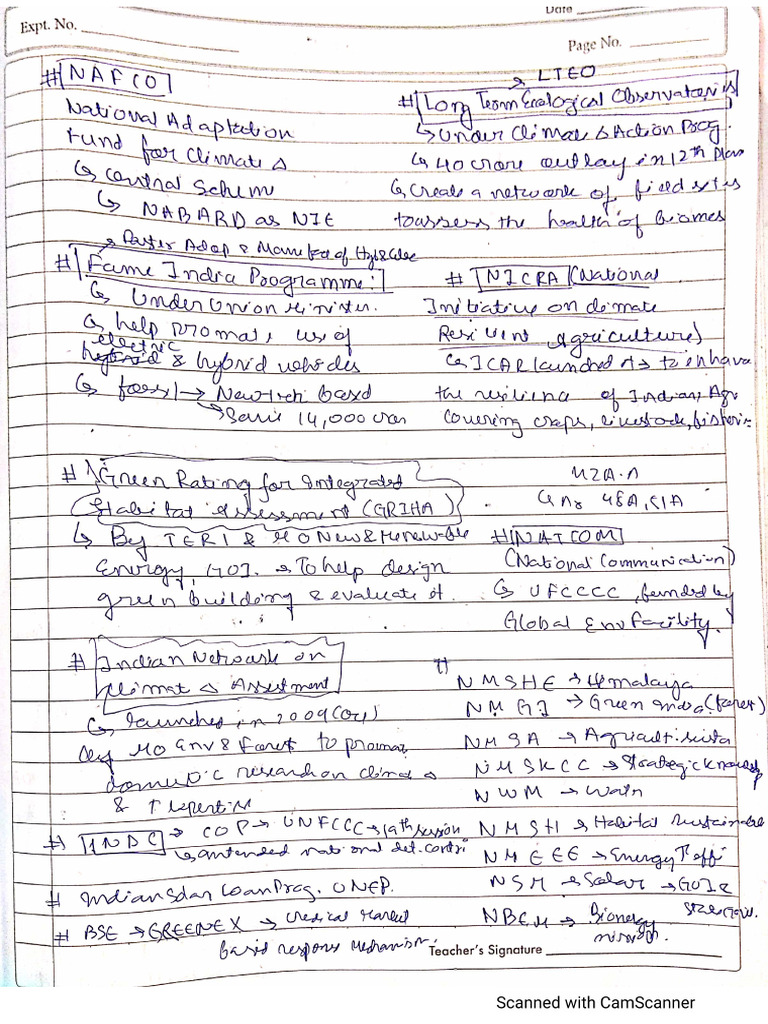 Date
Expt. No.
Page No.
# NAFCO
National Adaptation
Fund for Climate Δ
↳ Central Scheme
↳ NABARD as NIE
→ LTEO
# Long Term Ecological Observatories
↳ Under Climate Δ Action Prog.
↳ 40 crore outlay in 12th Plan
↳ Create a network of field sites
to assess the health of biomes
→ Faster Adop & Manu
# Fame India Programme:
↳ Under Union Minister.
↳ help promote use of
electric
hybrid & hybrid vehicles
↳ focus → New tech based
→ Save 14,000 crore
# NICRA (National
Initiative on climate
Resilient Agriculture)
↳ ICAR launched it to enhance
the resilience of Indian Agri
covering crops, livestock, fisheries
# Green Rating for Integrated
Habitat Assessment (GRIHA)
↳ By TERI & MO New & Renewable
Energy, GOI. → To help design
green building & evaluate it.
48A, 51A
# NATCOM
(National Communication)
↳ UFCCC, funded by
Global Env Facility.
# Indian Network on
Climate Δ Assessment
↳ launched in 2009 (Oct)
by MO Env & Forest to promote
domestic research on climate Δ
& ↑ expertise
# INDC → COP → UNFCCC → 19th session
↳ intended national det. contri
# Indian Solar Loan Prog. UNEP.
# BSE → GREENEX → credical Market
based respons Mechanism.
NMSHE → Himalaya
NMGI → Green India (forest)
NMSA → Agricult. susta
NMSKCC → Strategic knowledge
NWM → Water
NMSH → Habitat sustainable
NMEEE → Energy ↑ effi
NSM → Solar → GOI &
State Govt.
NBEM → Bioenergy
mission.
Teacher's Signature
Scanned with CamScanner